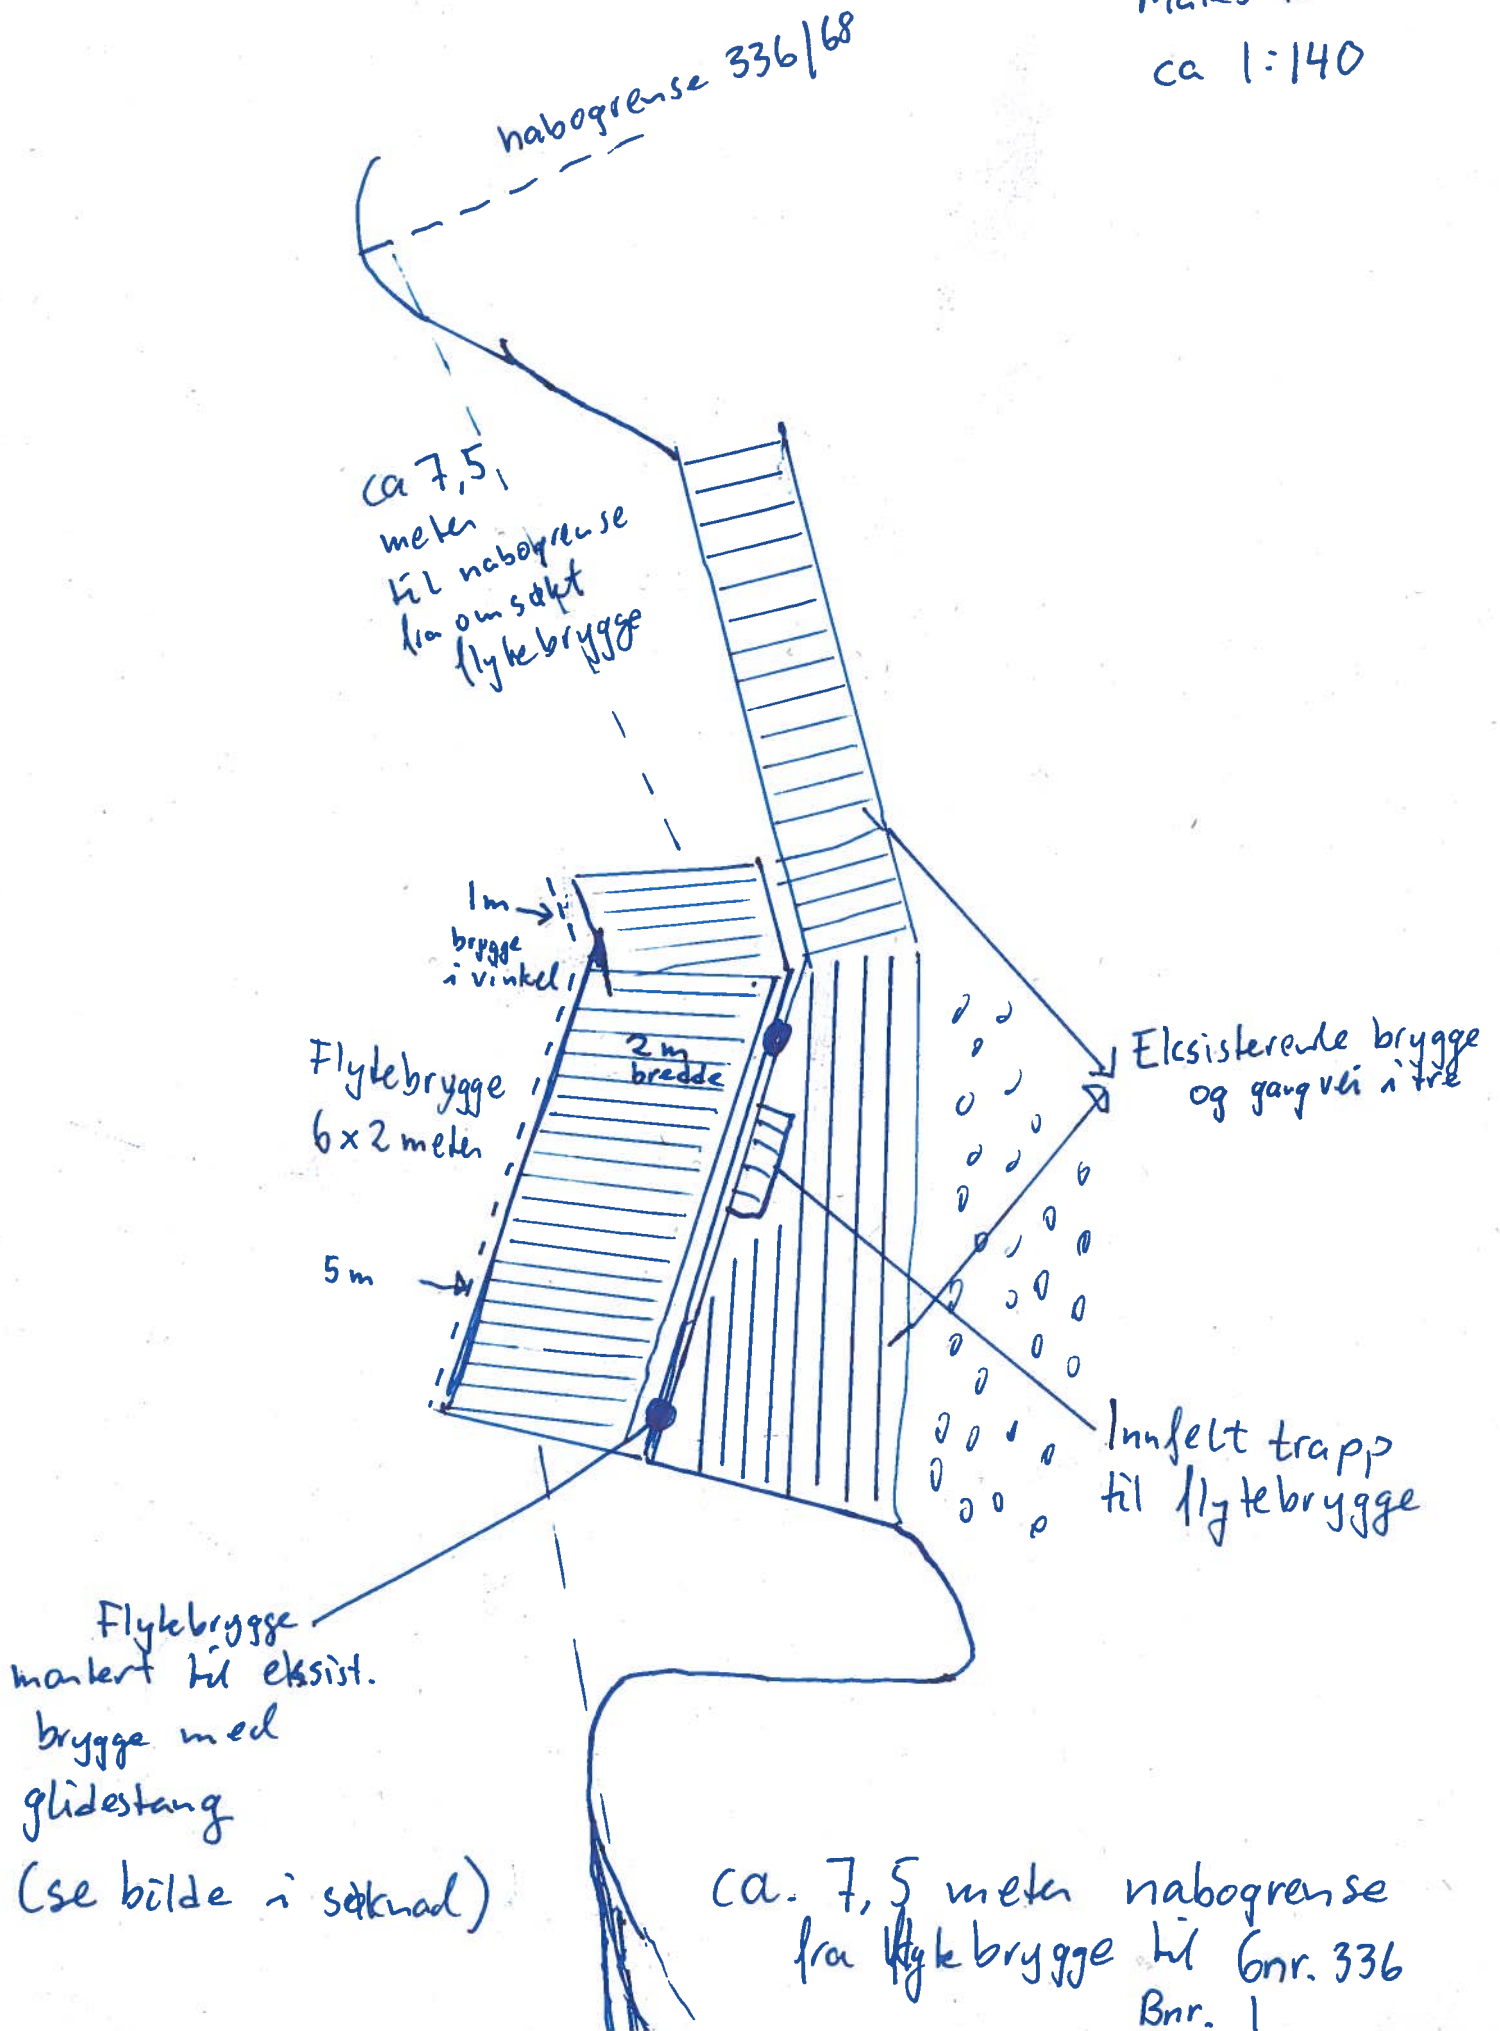 ca 1:140
nabogrense 336/68
ca 7,5
meter
til nabogrense
fra omsøkt
flytebrygge
1m
brygge
i vinkel
2 m
bredde
Flytebrygge
6 x 2 meter
5 m
Eksisterende brygge
og gangvei i tre
Innfelt trapp
til flytebrygge
Flytebrygge
montert til eksist.
brygge med
glidestang
(se bilde i søknad)
ca. 7,5 meter nabogrense
fra flytebrygge til Gnr. 336
Bnr. 1